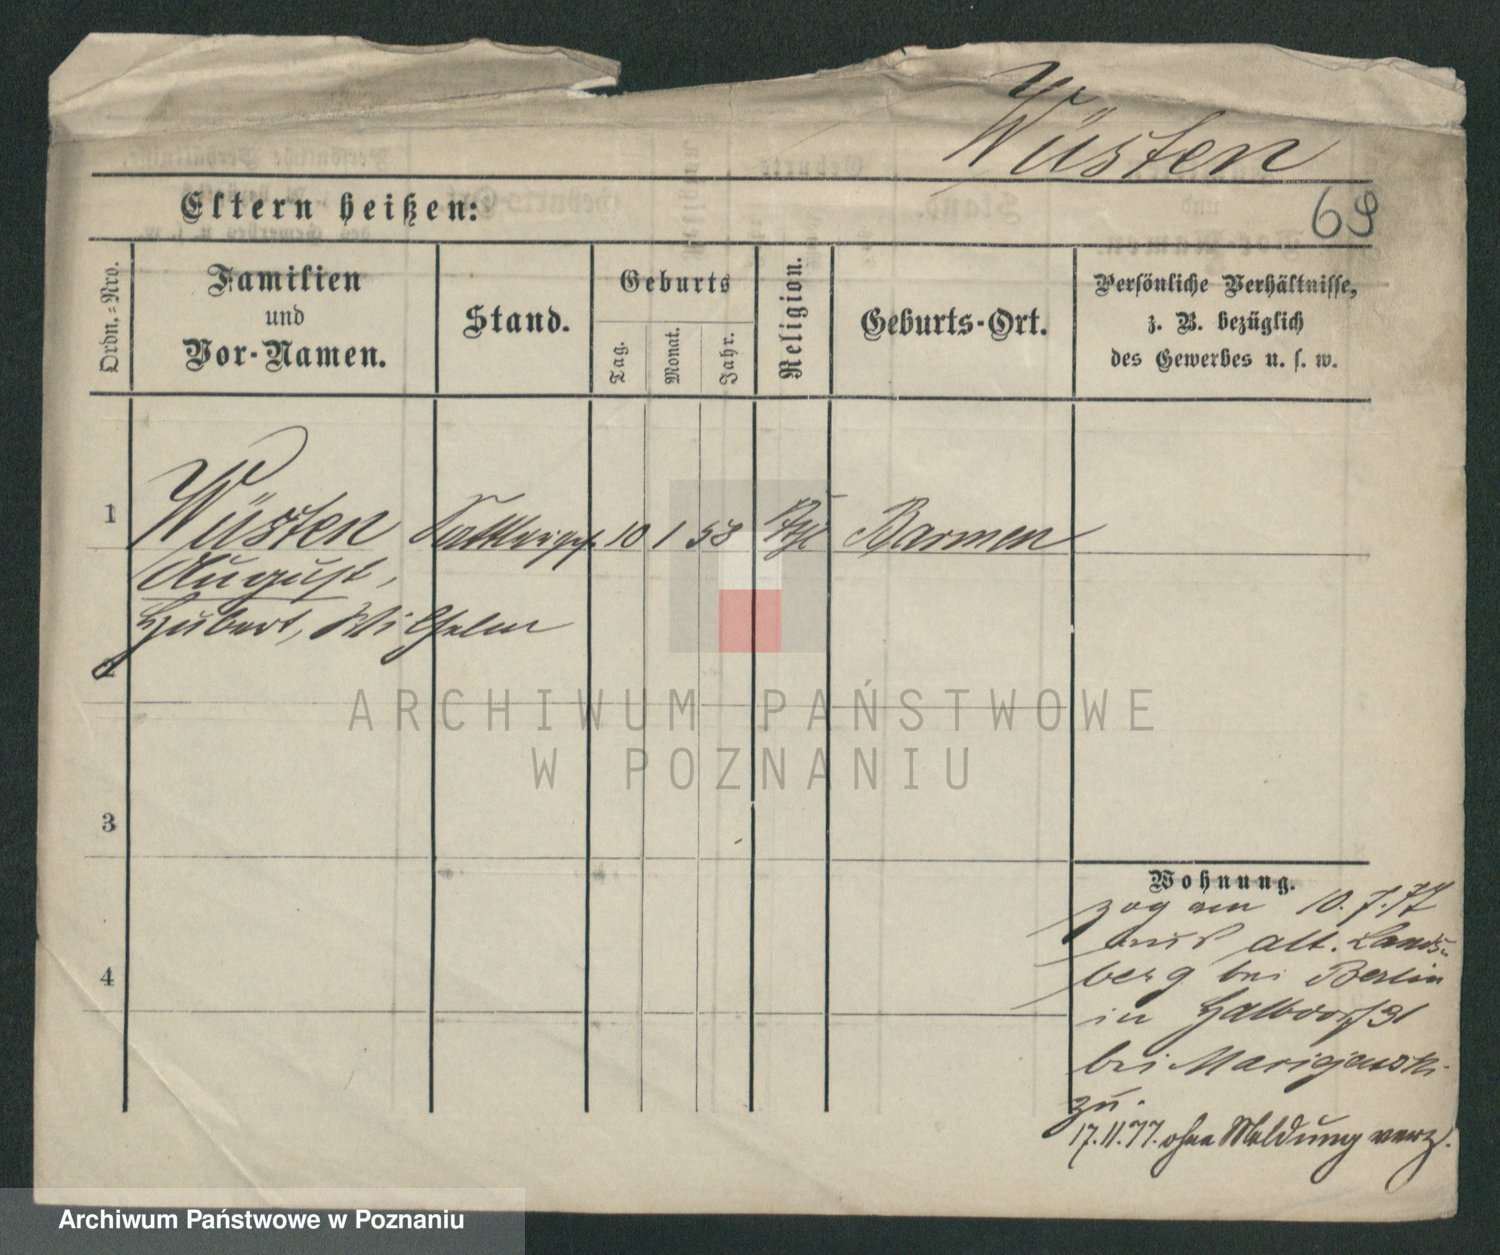 Wüsten
69
Eltern heißen:
Ordn.-Nro.
Familien
und
Vor-Namen.
Stand.
Geburts
Tag.
Monat.
Jahr.
Religion.
Geburts-Ort.
Persönliche Verhältnisse,
z. B. bezüglich
des Gewerbes u. s. w.
1
Wüsten
10
1
58
Barmen
August,
Hubert, Wilhelm
2
ARCHIWUM PAŃSTWOWE
W POZNANIU
3
Wohnung.
zog am 10.7.77
aus alt. Lands-
4
berg bei Berlin
in Halbdorfst
bei
zu.
17.11.77. ohne Meldung verz.
Archiwum Państwowe w Poznaniu